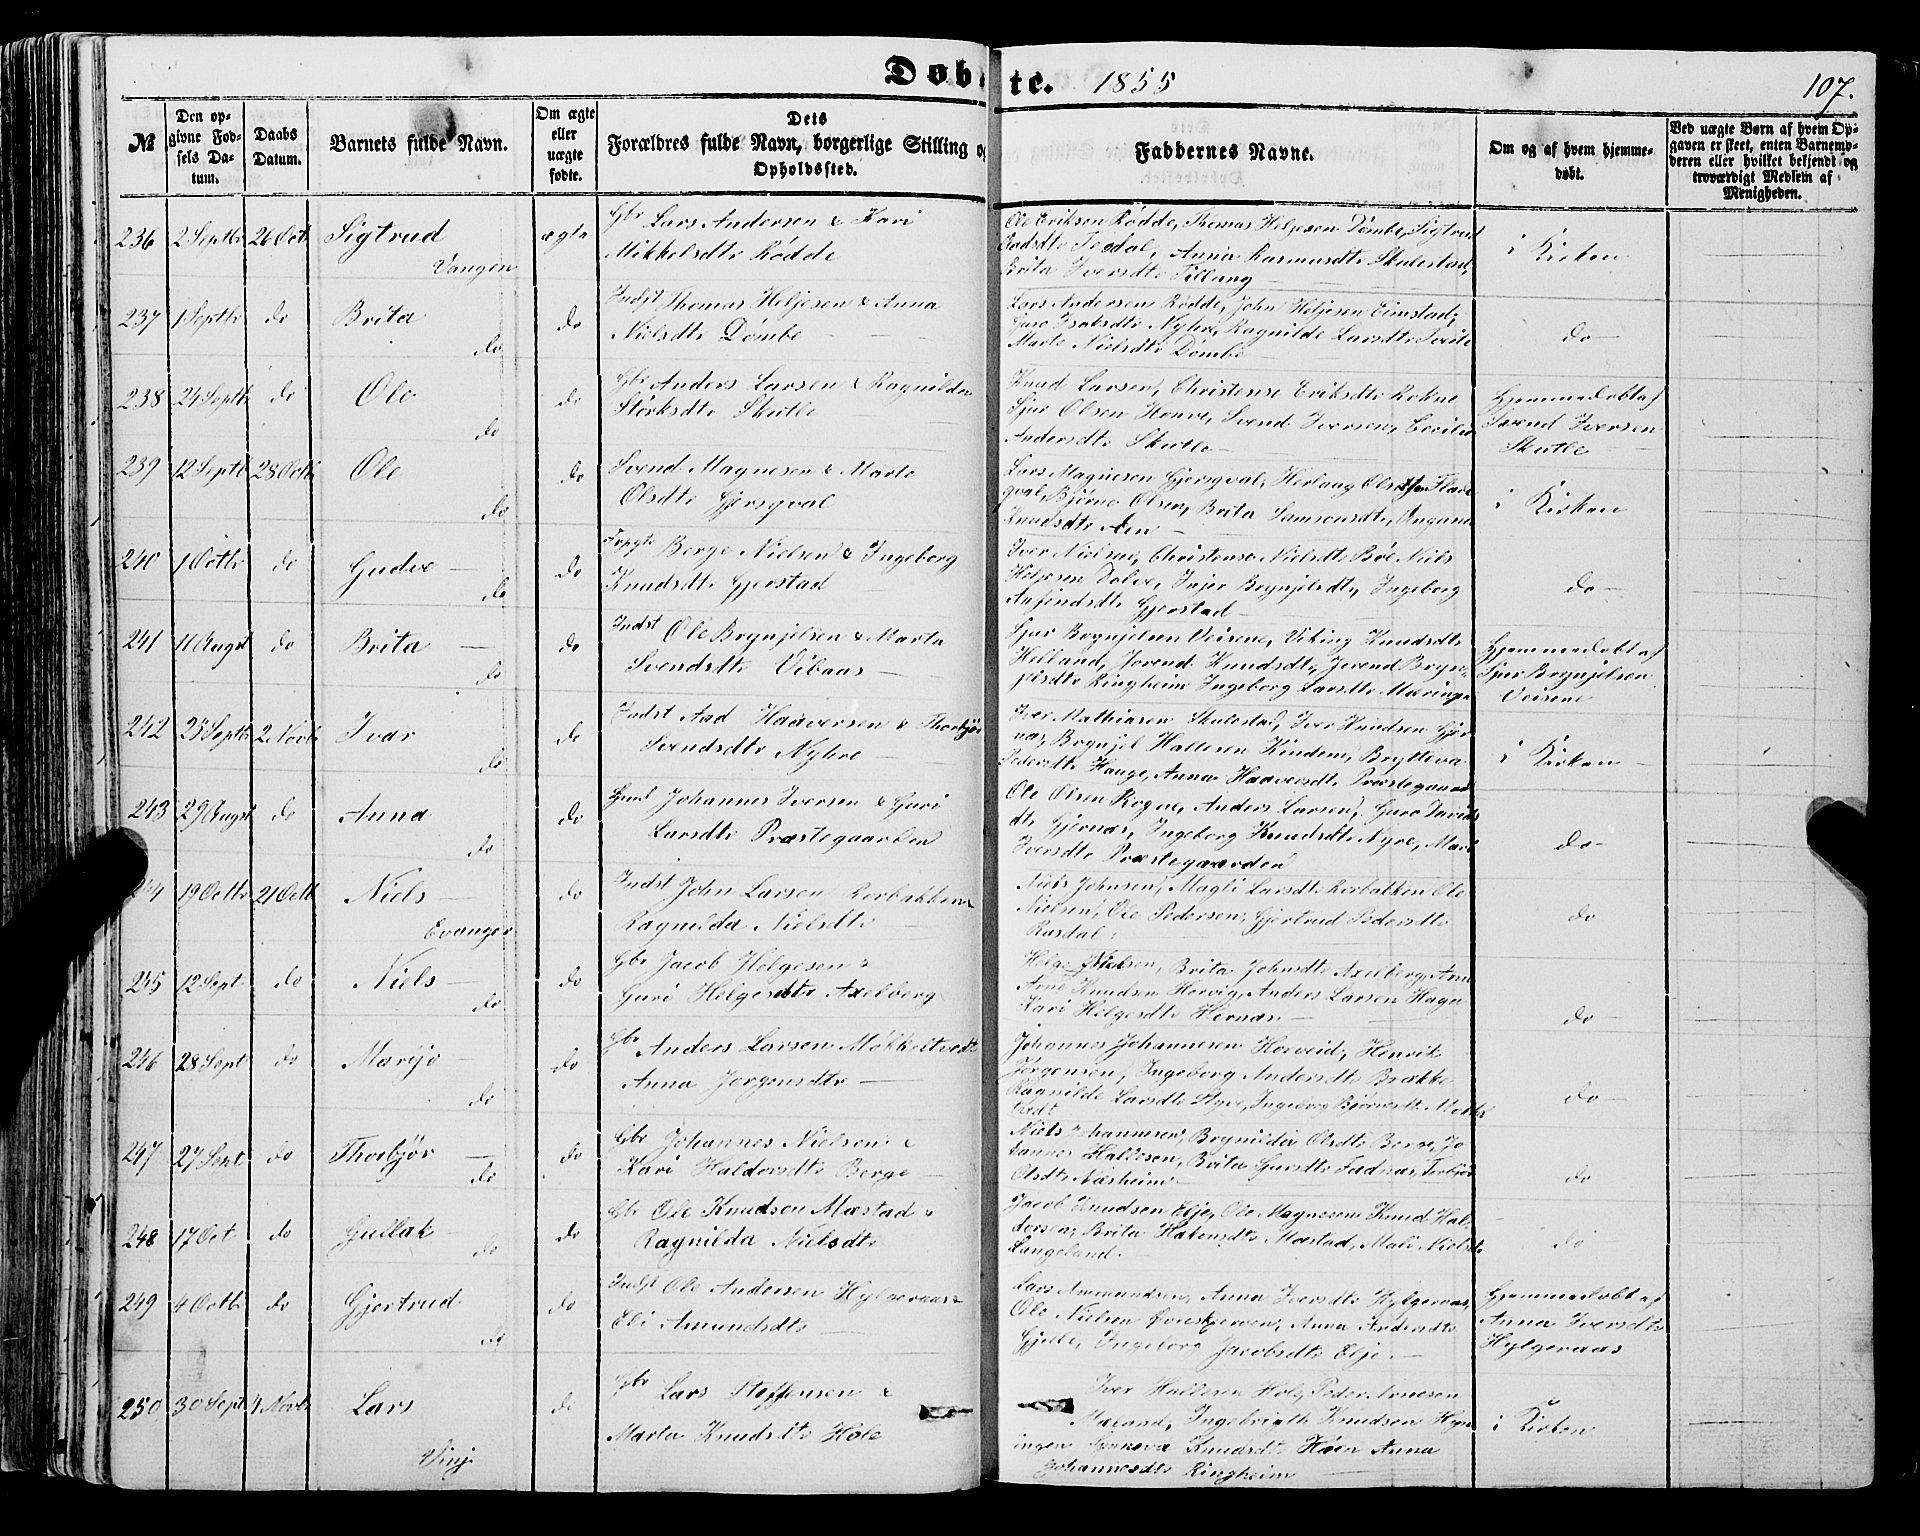 Døbte. 1855
107.
№
Den opgivne Fødsels Datum.
Daabs Datum.
Barnets fulde Navn.
Om ægte eller uægte fødte.
Dets Forældres fulde Navn, borgerlige Stilling og Opholdssted.
Faddernes Navne.
Om og af hvem hjemmedøbt.
Ved uægte Børn af hvem Opgaven er skeet, enten Barnemoderen eller hvilket bekjendt og troværdigt Medlem af Menigheden.
236 2 Septbr 26 Oct Sigtrud Vangen ægte
Gbr Lars Andersen & Kari
Mikkelsdtr Rödde
Ole Eriksen Rödde, Thomas Heljesen Dömbe, Sigtrud
Tesdal, Anna Rasmusdtr Skulestad,
Brita Iversdtr Tillung
i Kirken
237 1 Septbr do Brita do do
Indst Thomas Heljesen & Anna
Nielsdtr Dömbe
Lars Andersen Rödde, John Heljesen Eimstad,
Nyhre, Ragnilde Larsdtr Tveite
Marte Nielsdtr Dömbe
do
238 24 Septb do Ole do do
Gbr Anders Larsen & Ragnilda
Störksdtr Skutle
Knud Larsen, Christense Eriksdtr Rokne
Sjur Olsen Houve, Svend Iversen, Cecilia
Andersdtr Skutle
Hjemmedöbt af
Svend Iversen
Skutle
239 12 Septb 28 Octb Ole do do
Svend Magnesen & Marte
Olsdtr Gjersgval
Lars Magnesen Gjersgval, Herlaug
Björne Olsen, Brita Samsonsdtr,
Knudsdtr
i Kirken
240 1 Octbr do Gudve do do
Berge Nielsen & Ingeborg
Knudsdtr Gjerstad
Iver Nielsen, Christense Nielsdtr Böe Niels
Heljesen Dolve, Inger Brynjelsdtr, Ingeborg
Anfindsdtr Gjerstad
do
241 11 Augst do Brita do do
Indst Ole Brynjelsen & Marta
Svendsdtr Vibaas
Sjur Brynjelsen Veisene, Viking Knudsdtr
Helland, Jorend Knudsdtr, Jorend
Ringheim Ingeborg Larsdtr
Hjemmedöbt af
Sjur Brynjelsen
Veisene
242 25 Septb 2 Novb Ivar do do
Indst Aad Haaversen & Thorbjör
Svendsdtr Nyhre
Iver Mathiasen Skulestad, Iver Knudsen
Brynjel Haldesen Kindem, Brytteva
Pedersdtr Hauge, Anna Haaversdtr Præstegaard
i Kirken
243 29 Augst do Anna do do
Johannes Iversen & Guri
Larsdtr Præstegaarden
Ole Olsen Rogne, Anders Larsen, Guro
Gjernæs, Ingeborg Knudsdtr Nyre,
Iversdtr Præstegaarden
do
19 Octbr 21 Octb Niels Evanger do
Indst John Larsen Rorbakken &
Ragnilda Nielsdtr
Niels Johnsen, Magli Larsdtr Rorbakken Ole
Nielsen, Ole Pedersen, Gjertrud Pedersdtr
Rasdal
do
245 12 Sept do Niels do do
Gbr Jacob Helgesen &
Guri Helgesdtr Axelberg
Helge Nielsen, Brita Johnsdtr Axelberg,
Arne Knudsen Horvig, Anders Larsen
Kari Helgesdtr Hernæs
do
246 28 Sept do Marjo do do
Gbr Anders Larsen Mökkeltvedt
Anna Jorgensdtr
Johannes Johannesen Horveid, Henrik
Jörgensen, Ingeborg Andersdtr Brække
Ragnilde Larsdtr Styve, Ingeborg
do
247 27 Sept do Thorbjör do do
Gbr Johannes Nielsen &
Kari Haldorsdtr Berge
Niels Johannesen, Brynilda Olsdtr Berge,
Haldesen, Brita Fadnæs,
Olsdtr Næsheim
do
248 17 Oct do Gullak do do
Gbr Ole Knudsen Mæstad &
Ragnilda Nielsdtr
Jacob Knudsen Elje, Ole Magnesen Knud
Brita Mæstad, Mali Nielsdtr
Langeland
do
249 4 Octb do Gjertrud do do
Indst Ole Andersen Hylgeraas &
Eli Amundsdtr
Lars Ammundsen, Anna Iversdtr Hylgeraas,
Ole Nielsen, Anna Andersdtr
Gjelle, Ingeborg Jacobsdtr Elje.
Hjemmedöbt af
Anna Iversdtr
Hylgeraas
250 30 Sept 4 Novb Lars Vinje do
Gbr Lars Steffensen &
Marta Knudsdtr Hole
Iver Haldesen Hole, Peder Arnesen
Ingebrigth Knudsen
Knudsdtr Anna
Johannesdtr Ringheim
i Kirken